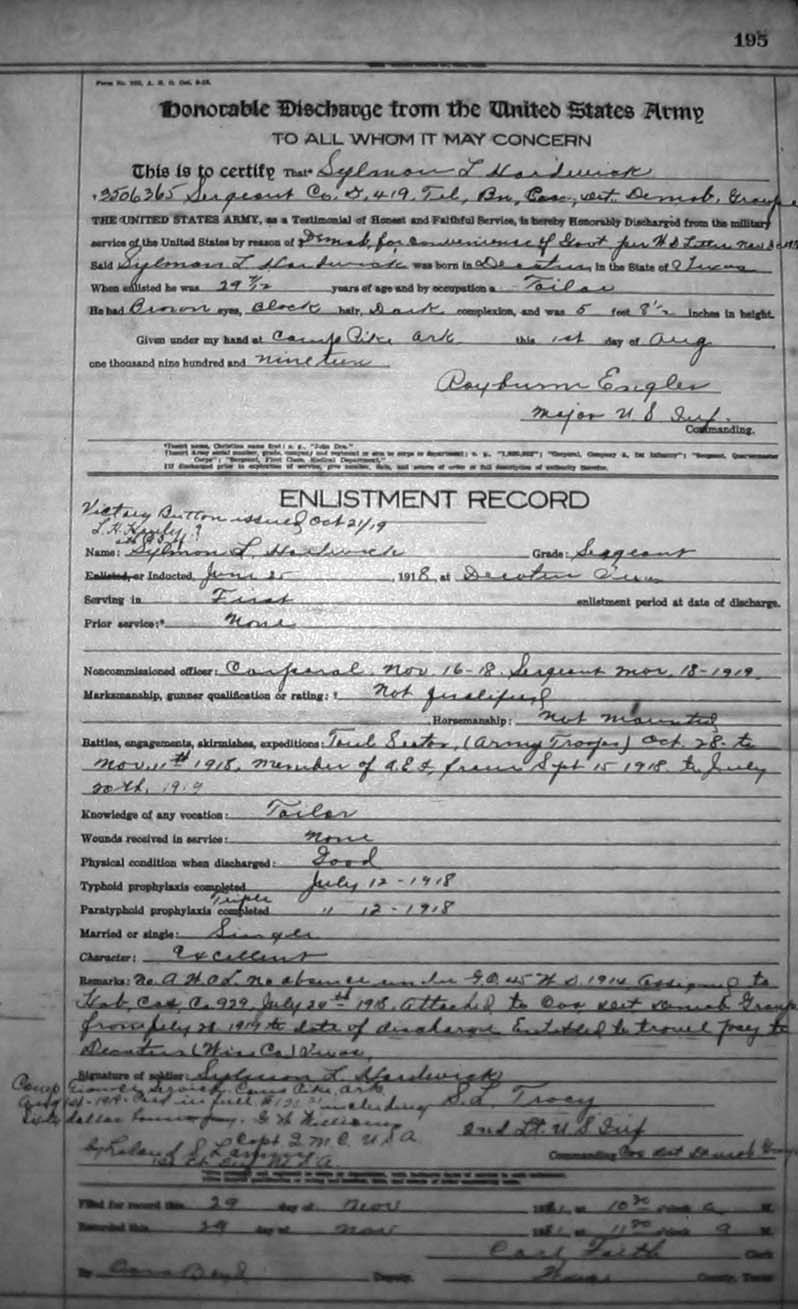 195
Form No. 525, A. G. O. Oct. 9-18.
Honorable Discharge from the United States Army
TO ALL WHOM IT MAY CONCERN
This is to certify That* Sylmon L Hardwick
3506365 Sergeant Co. D, 419, Tel, Bn, Cas, Det. Demob. Group
THE UNITED STATES ARMY, as a Testimonial of Honest and Faithful Service, is hereby Honorably Discharged from the military
service of the United States by reason of Demob, for convenience of Govt per W D Letter Nov
Said Sylmon L Hardwick was born in Decatur, in the State of Texas
When enlisted he was 29 years of age and by occupation a Tailor
He had Brown eyes, Black hair, Dark complexion, and was 5 feet 8 1/2 inches in height.
Given under my hand at Camp Pike Ark this 1st day of Aug
one thousand nine hundred and nineteen
Rayburn Engler
Major U S Inf.
Commanding.
*Insert name, Christian name first; e. g., "John Doe."
ENLISTMENT RECORD
Victory Button issued Oct 21/19
Name: Sylmon L. Hardwick Grade: Sergeant
Enlisted, or Inducted, June 25, 1918, at Decatur Texas
Serving in First enlistment period at date of discharge.
Prior service:* None
Noncommissioned officer: Corporal Nov 16-18. Sergeant Mar. 18-1919.
Marksmanship, gunner qualification or rating: † Not qualified
Horsemanship: Not Mounted
Battles, engagements, skirmishes, expeditions: Toul Sector, (Army Troops) Oct. 28- to
Nov. 11th 1918, Member of A.E.F, from Sept 15 1918 to July
20th, 1919
Knowledge of any vocation: Tailor
Wounds received in service: None
Physical condition when discharged: Good
Typhoid prophylaxis completed July 12-1918
Triple
Paratyphoid prophylaxis completed " 12-1918
Married or single: Single
Character: Excellent
Remarks: No A W O L no absence under G.O. 45 W D. 1914 Assigned to
Cas, Co. 929, July 20th 1918. Attached to Cas Det Demob Group
from July 1919 to date of discharge Entitled to travel pay to
Decatur (Wise Co) Texas,
Signature of soldier: Sylmon L Hardwick
Camp Pike, Ark
Aug 1st-1919. Paid in full including
Sixty dollar bonus pay. G H Williams
Capt Q M C. U S A
S. L. Tracy
2nd Lt. U S Inf
Commanding Cas Det Demob Group
Filed for record this 29 day of Nov at 10 30 o'clock A M.
Recorded this 29 day of Nov at 11 00 o'clock A M.
Carl Faith Clerk
By Deputy. Wise County, Texas